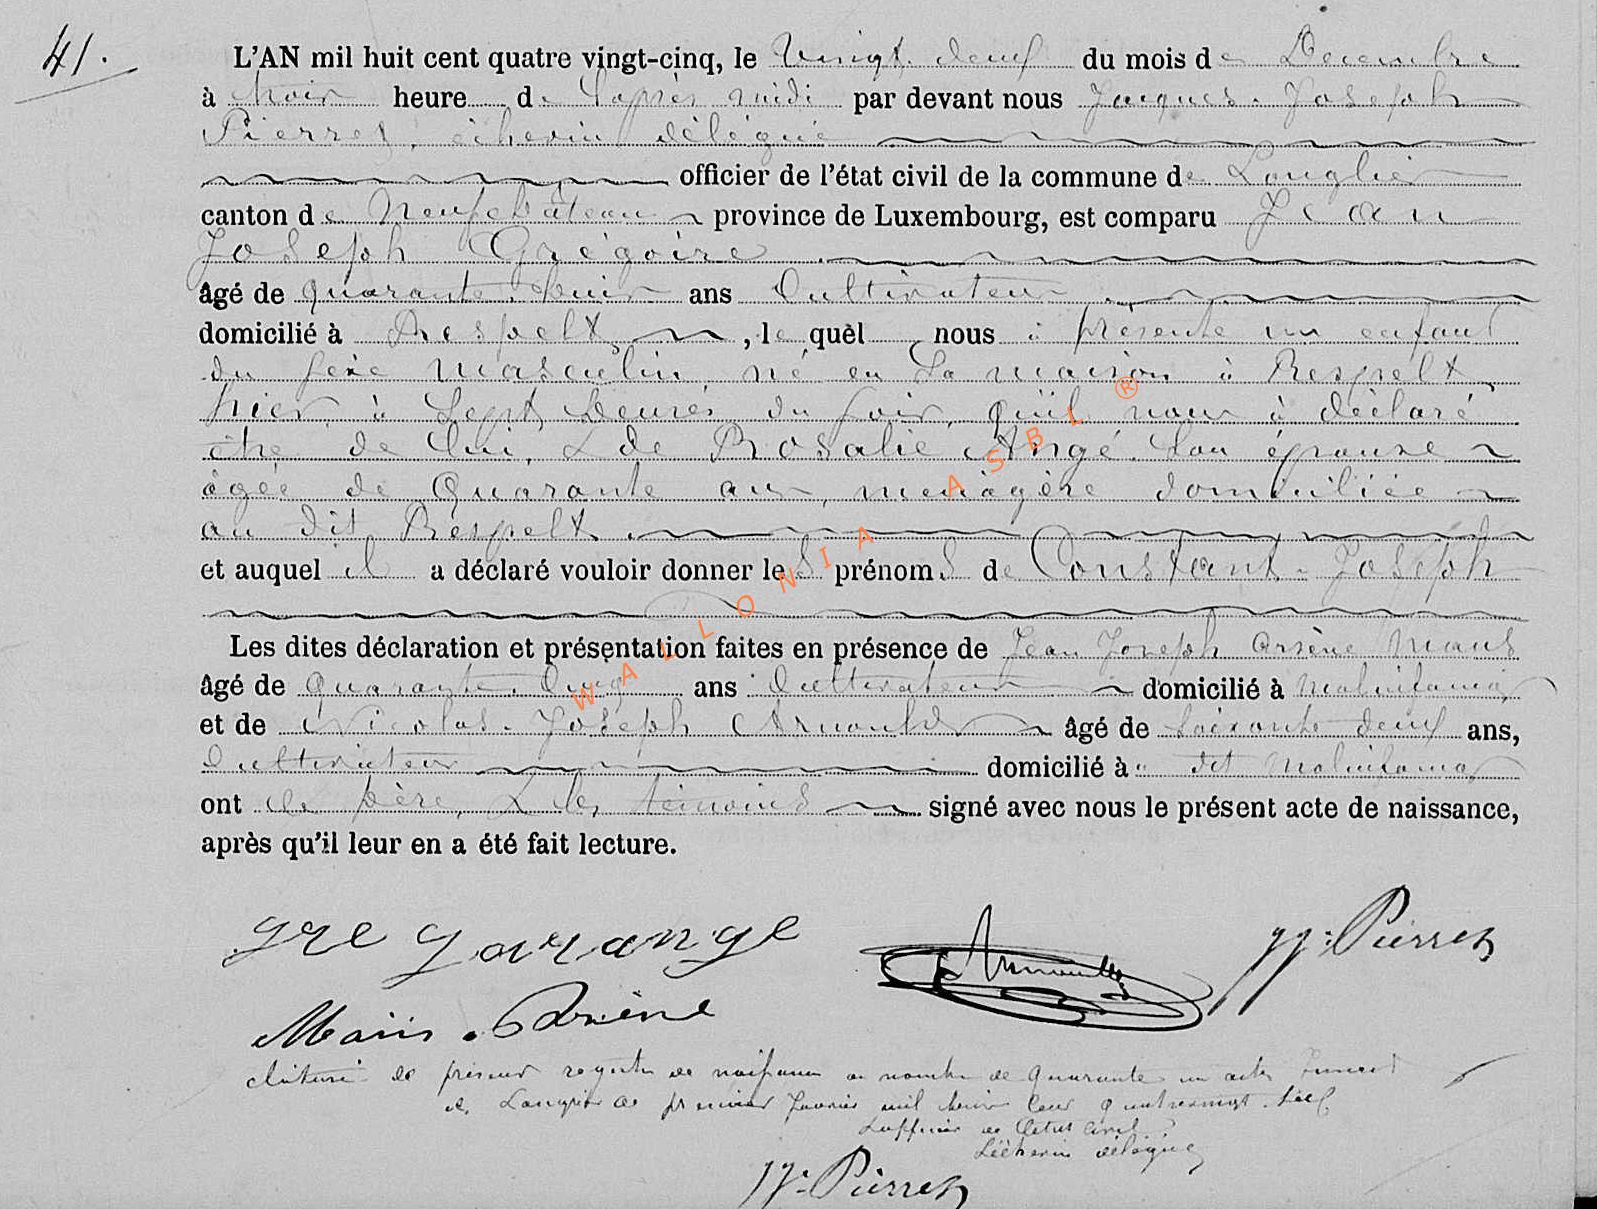 41.
L'AN mil huit cent quatre vingt-cinq, le vingt deux du mois de Decembre
à trois heure de l'après midi par devant nous Jacques. Joseph
Pierret, échevin délégué
officier de l'état civil de la commune de Longlier
canton de Neufchâteau province de Luxembourg, est comparu Jean
Joseph Grégoire
âgé de quarante. huit ans Cultivateur
domicilié à Respelt, lequèl nous à présenté un enfant
du sexe masculin, né en sa maison à Respelt,
hier à sept heures du soir, qu'il nous à déclaré
être de lui, & de Rosalie Angé. son épouse
âgée de Quarante ans, ménagère domiciliée
au dit Respelt.
et auquel il a déclaré vouloir donner les prénoms de Constant. Joseph
Les dites déclaration et présentation faites en présence de Jean Joseph Arsène Maus
âgé de Quarante. ans Cultivateur domicilié à
et de Nicolas. Joseph Arnould âgé de soixante deux ans,
Cultivateur domicilié à dit
ont le père, & les témoins signé avec nous le présent acte de naissance,
après qu'il leur en a été fait lecture.
gre gorange
Arnould
JJ. Pierret
Maus. Arsène
Cloturé le présent registre de naissance au nombre de quarante un actes
à Longlier le premier Janvier mil huit cent quatrevingt. six
L'officier de l'état civil
L'échevin délégué
JJ. Pierret
WALLONIA ASBL ®